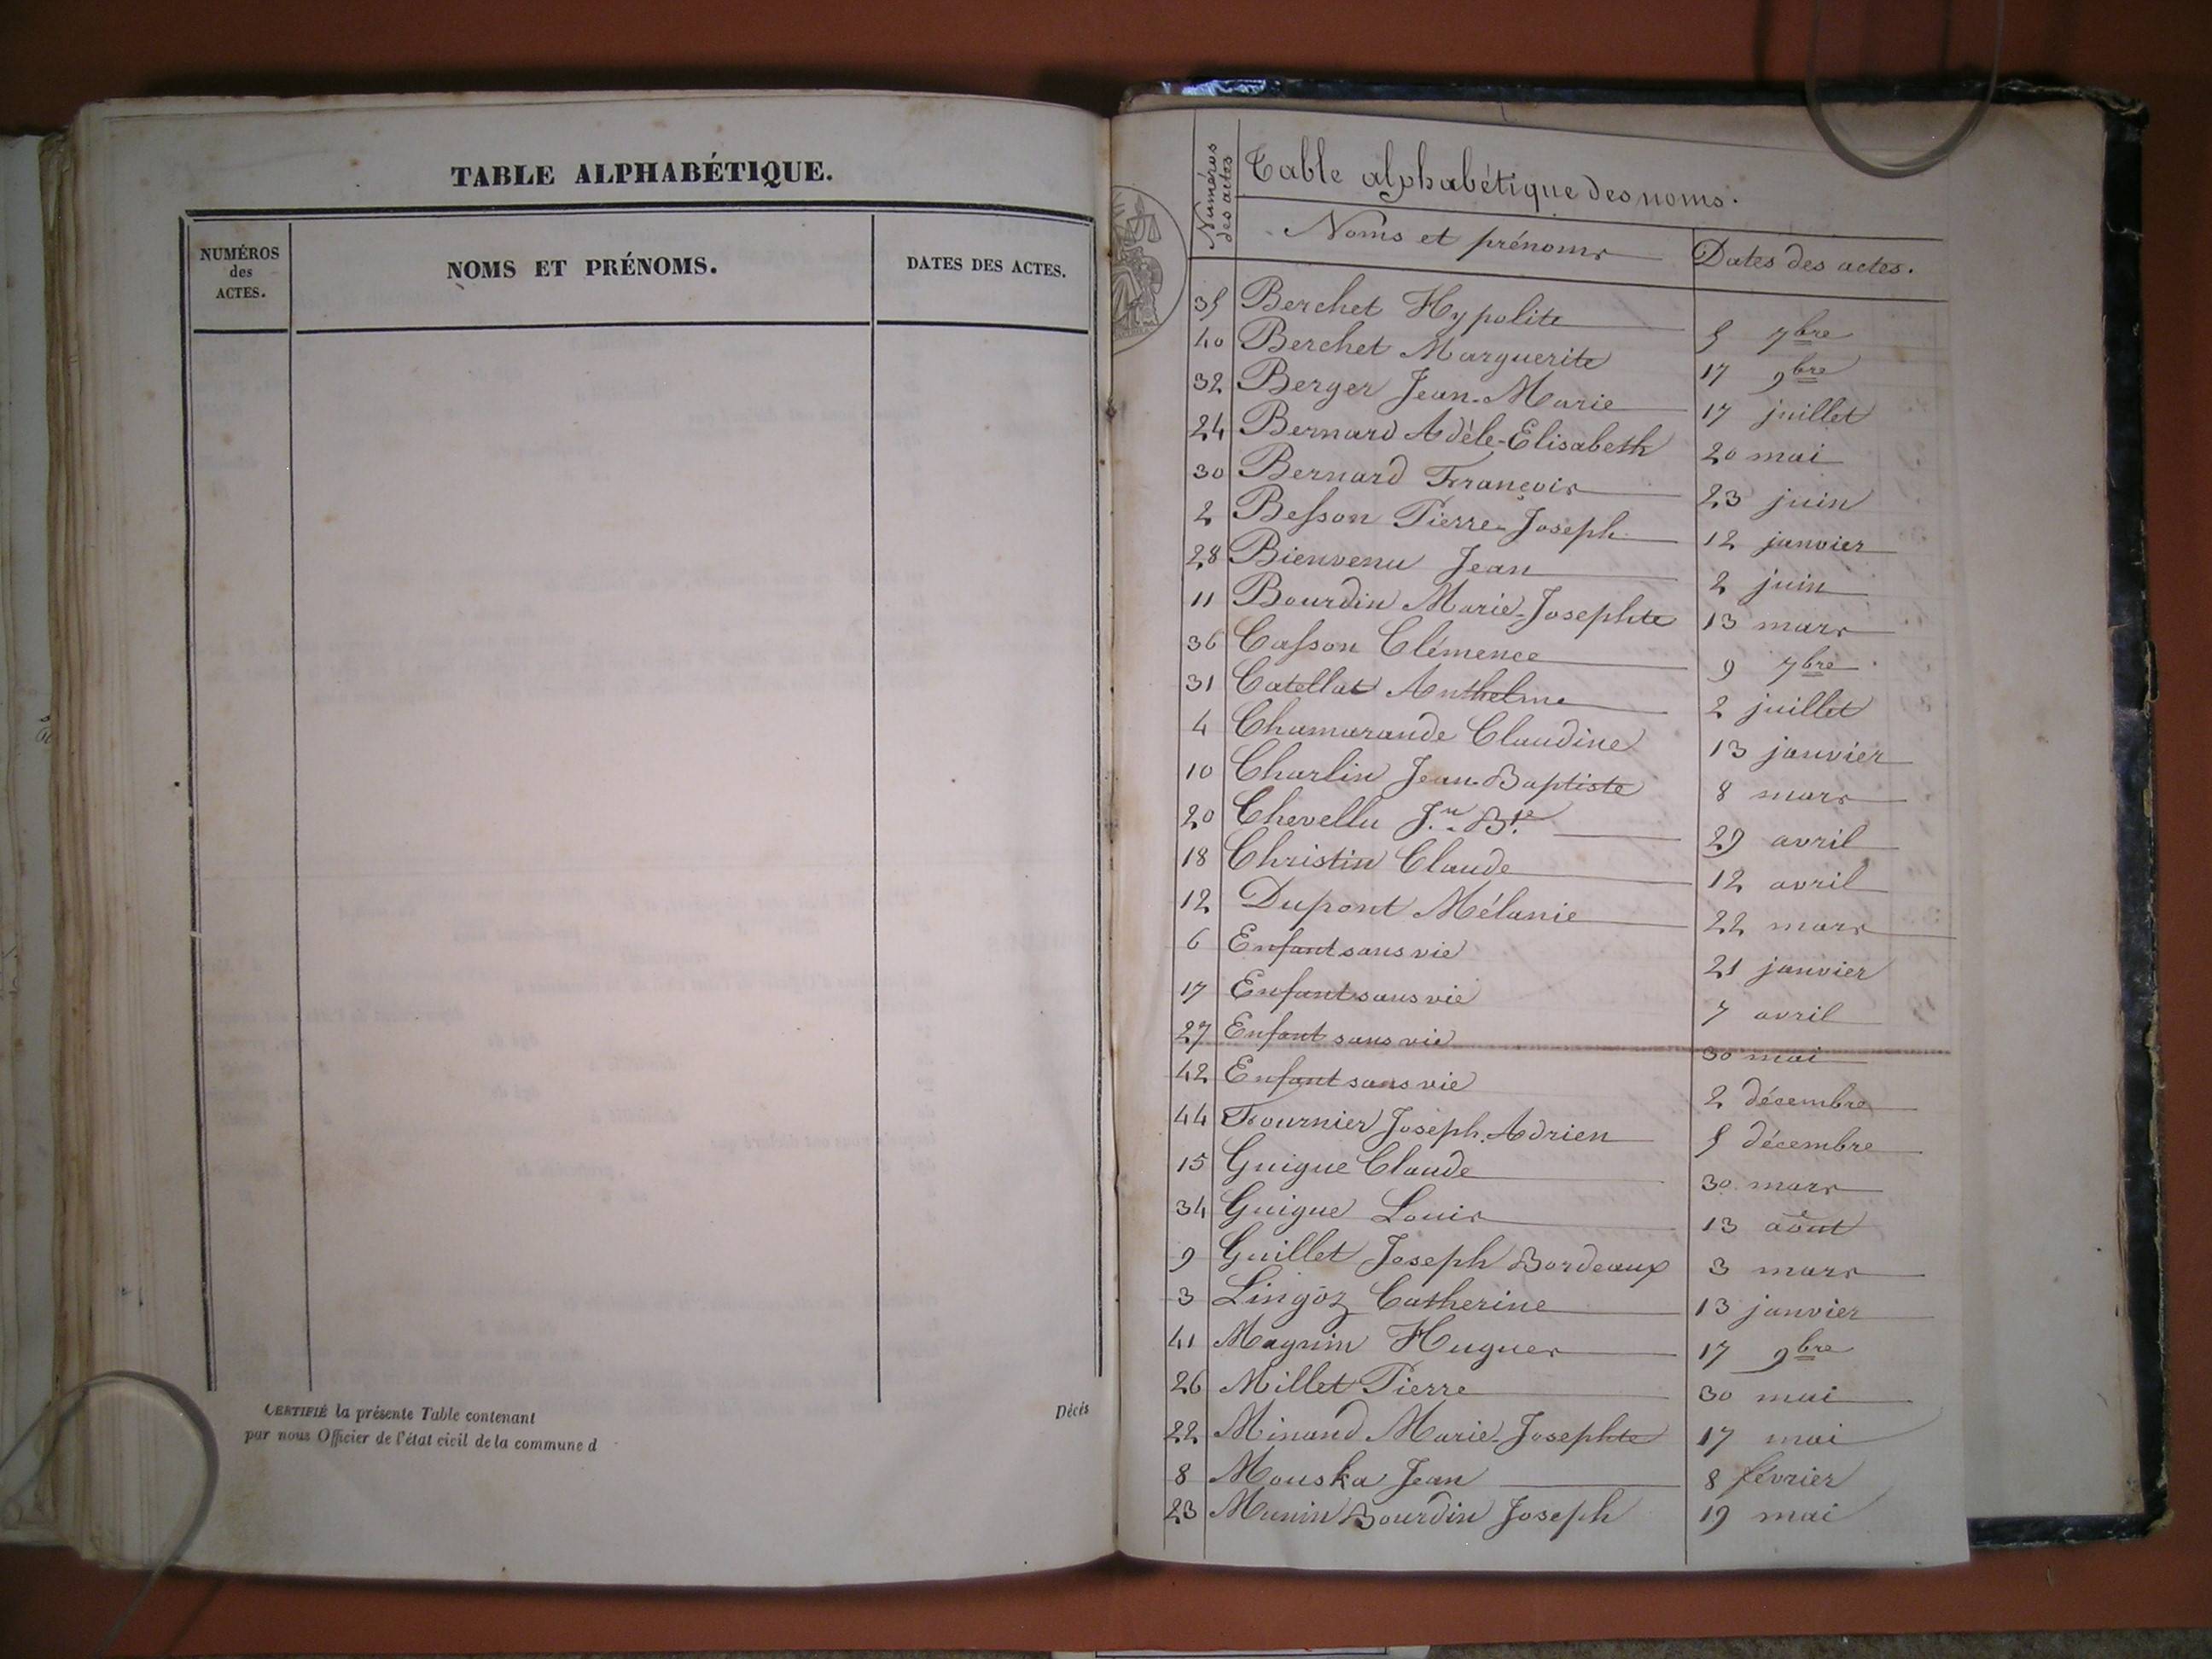 TABLE ALPHABÉTIQUE.
NUMÉROS des ACTES.
NOMS ET PRÉNOMS.
DATES DES ACTES.
CERTIFIÉ la présente Table contenant Décès
par nous Officier de l'état civil de la commune d
Numéros des actes
Table alphabétique des noms.
Noms et prénoms
Dates des actes.
35 Berchet Hypolite 5 7bre
40 Berchet Marguerite 17 9bre
32 Berger Jean-Marie 17 juillet
24 Bernard Adèle-Elisabeth 20 mai
30 Bernard François 23 juin
2 Besson Pierre-Joseph 12 janvier
28 Bienvenu Jean 2 juin
11 Bourdin Marie-Josephte 13 mars
36 Casson Clémence 9 7bre
31 Catellat Anthelme 2 juillet
4 Chamarande Claudine 13 janvier
10 Charlin Jean-Baptiste 8 mars
20 Chevellu Jn Bte 29 avril
18 Christin Claude 12 avril
12 Dupont Mélanie 22 mars
6 Enfant sans vie 21 janvier
17 Enfant sans vie 7 avril
27 Enfant sans vie 30 mai
42 Enfant sans vie 2 décembre
44 Fournier Joseph-Adrien 5 décembre
15 Guigue Claude 30 mars
34 Guigue Louis 13 août
9 Guillet Joseph Bordeaux 3 mars
3 Lingoz Catherine 13 janvier
41 Magnin Hugues 17 9bre
26 Millet Pierre 30 mai
22 Minand Marie-Josephte 17 mai
8 Mouska Jean 8 février
23 Munin Bourdin Joseph 19 mai